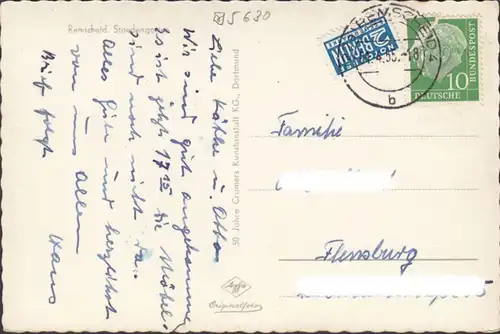 5630
Remscheid Staudengarten
Liebe Käthe u. Otto
Wir sind gut angekommen
Es ist jetzt 17 15 die Möbel
sind noch nicht da.
Alles Gute und herzlichst
von uns allen
Hans
Brief folgt
50 Jahre Cramers Kunstanstalt KG., Dortmund
Agfa
Originalfoto
NOTOPFER
2 BERLIN
STEUERMARKE
REMSCHEID 4
b
DEUTSCHE
BUNDESPOST
10
Familie
Flensburg